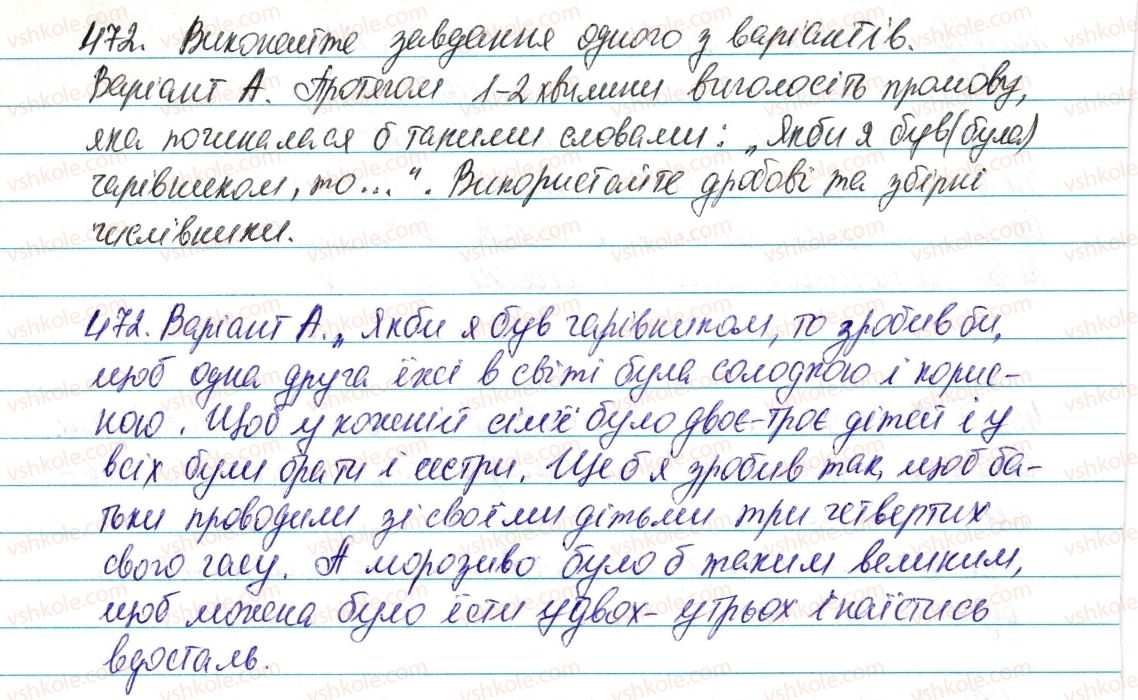 472. Виконайте завдання одного з варіантів.
Варіант А. Протягом 1-2 хвилини виголосіть промову,
яка починалася б такими словами: „Якби я був(була)
чарівником, то...". Використайте дробові та збірні
числівники.
472. Варіант А. „Якби я був чарівником, то зробив би,
щоб одна друга їжі в світі була солодкою і корис-
ною. Щоб у кожній сім'ї було двоє-троє дітей і у
всіх були брати і сестри. Ще б я зробив так, щоб ба-
тьки проводили зі своїми дітьми три четвертих
свого часу. А морозиво було б таким великим,
щоб можна було їсти удвох-утрьох і наїстись
вдосталь.
vshkole.com